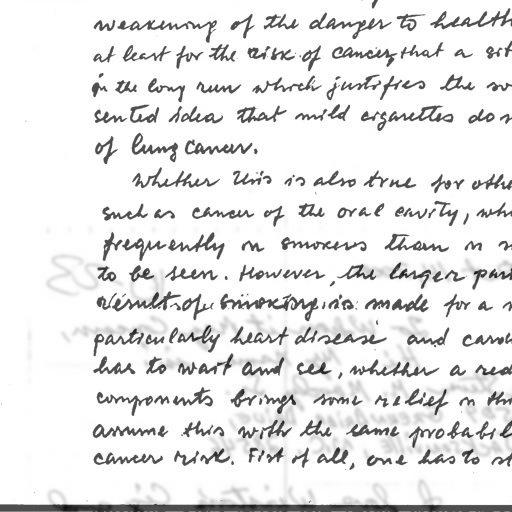 weakening of the danger to health
at least for the risk of cancer, that a sit
in the long run which justifies the so
sented idea that mild cigarettes do n
of lung cancer.
Whether this is also true for othe
such as cancer of the oral cavity, whi
frequently in smokers than in n
to be seen. However, the larger part
result of smoking is made for a
particularly heart disease and card
has to wait and see, whether a red
components brings some relief in thi
assume this with the same probabil
cancer risk. Fist of all, one has to st